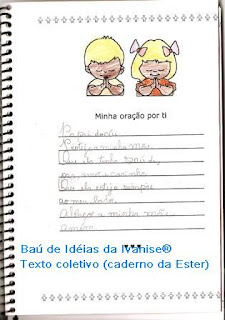 Minha oração por ti
Papai do céu
Proteja a minha mãe
Que ela tenha saúde,
paz, amor e carinho
Que ela esteja sempre
ao meu lado.
Abençoe a minha mãe
amém
Baú de Idéias da Ivanise®
Texto coletivo (caderno da Ester)